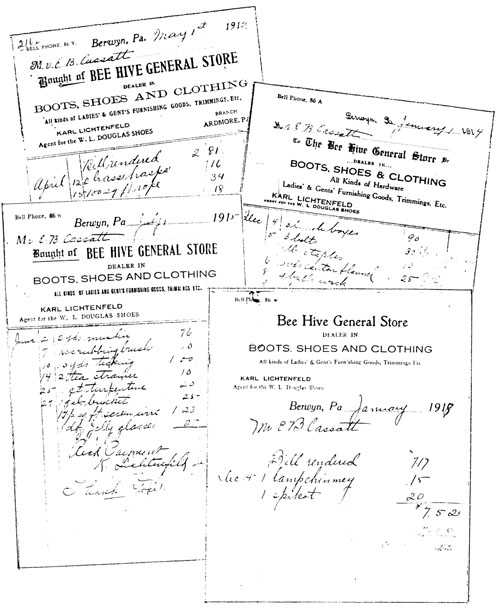 216
BELL PHONE 86 Y.
Berwyn, Pa. May 1st 191
Mr. E. B. Cassatt
Bought of BEE HIVE GENERAL STORE
DEALER IN
BOOTS, SHOES AND CLOTHING
All kinds of Ladies' & Gent's Furnishing Goods, Trimmings, Etc.
KARL LICHTENFELD
Agent for the W. L. DOUGLAS SHOES
BRANCH
ARDMORE, PA
Bill rendered 2 81
April 12 brass hasps 16
34
18
Bell Phone, 86 A
Berwyn, Pa. January 1 1914
Mr E B Cassatt
To The Bee Hive General Store Dr
DEALER IN
BOOTS, SHOES & CLOTHING
All Kinds of Hardware
Ladies' & Gents' Furnishing Goods, Trimmings, Etc.
KARL LICHTENFELD
AGENT FOR THE W. L. DOUGLAS SHOES
Dec 4 boxes 90
5 3 bolts 30
staples 10
6 canton flannel 25
8
Bell Phone, 86
Berwyn, Pa July 1 1915
Mr E B Cassatt
Bought of BEE HIVE GENERAL STORE
DEALER IN
BOOTS, SHOES AND CLOTHING
ALL KINDS OF LADIES AND GENTS FURNISHING GOODS, TRIMMINGS ETC.
KARL LICHTENFELD
Agent for the W. L. DOUGLAS SHOES
June 2 12 yds muslin 76
7 1 scrubbing brush 10
10 yds ticking 1 50
14 2 tea strainer 10
25 1 qt turpentine 20
25 1 galv bucket 25
17 sq ft screen wire 1 23
1 dz jelly glasses
Recd Payment
K Lichtenfeld
Thank You
Bell Ph 86
Bee Hive General Store
DEALER IN
BOOTS, SHOES AND CLOTHING
All kinds of Ladies' & Gent's Furnishing Goods, Trimmings, Etc
KARL LICHTENFELD
Agent for the W. L. Douglas Shoes
Berwyn, Pa January 191
Mr E B Cassatt
Bill rendered 717
Dec 4 1 lampchimney 15
1 spikot 20
$7.52